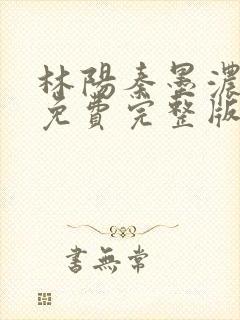 林陽秦墨濃
免費完整版
書無常